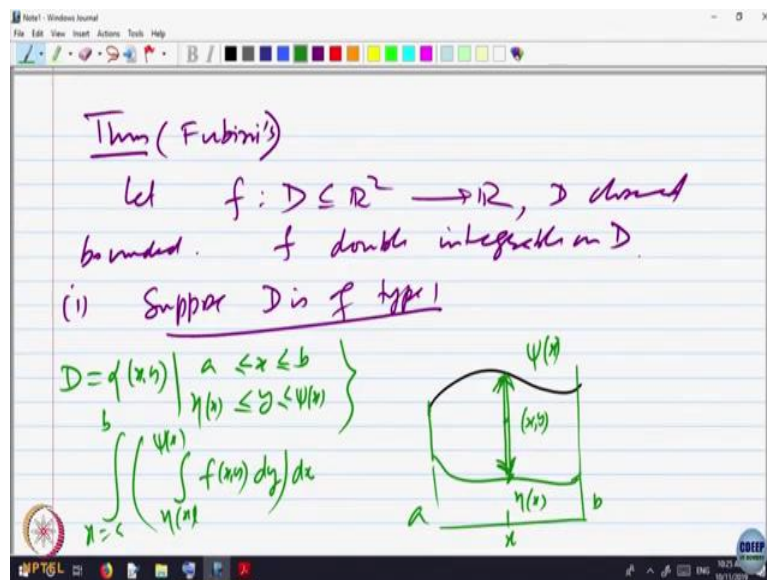 Note1 - Windows Journal
File Edit View Insert Actions Tools Help
B I
Thm (Fubini's)
Let f : D ⊆ ℝ² → ℝ, D closed
bounded. f double integrable on D.
(i) Suppose D is of type 1
D = { (x,y) | a ≤ x ≤ b
η(x) ≤ y ≤ ψ(x) }
∫_{x=a}^{b} ( ∫_{η(x)}^{ψ(x)} f(x,y) dy ) dx
ψ(x)
(x,y)
η(x)
a x b
NPTEL
CDEEP
ENG 10:25 AM
10/11/2019